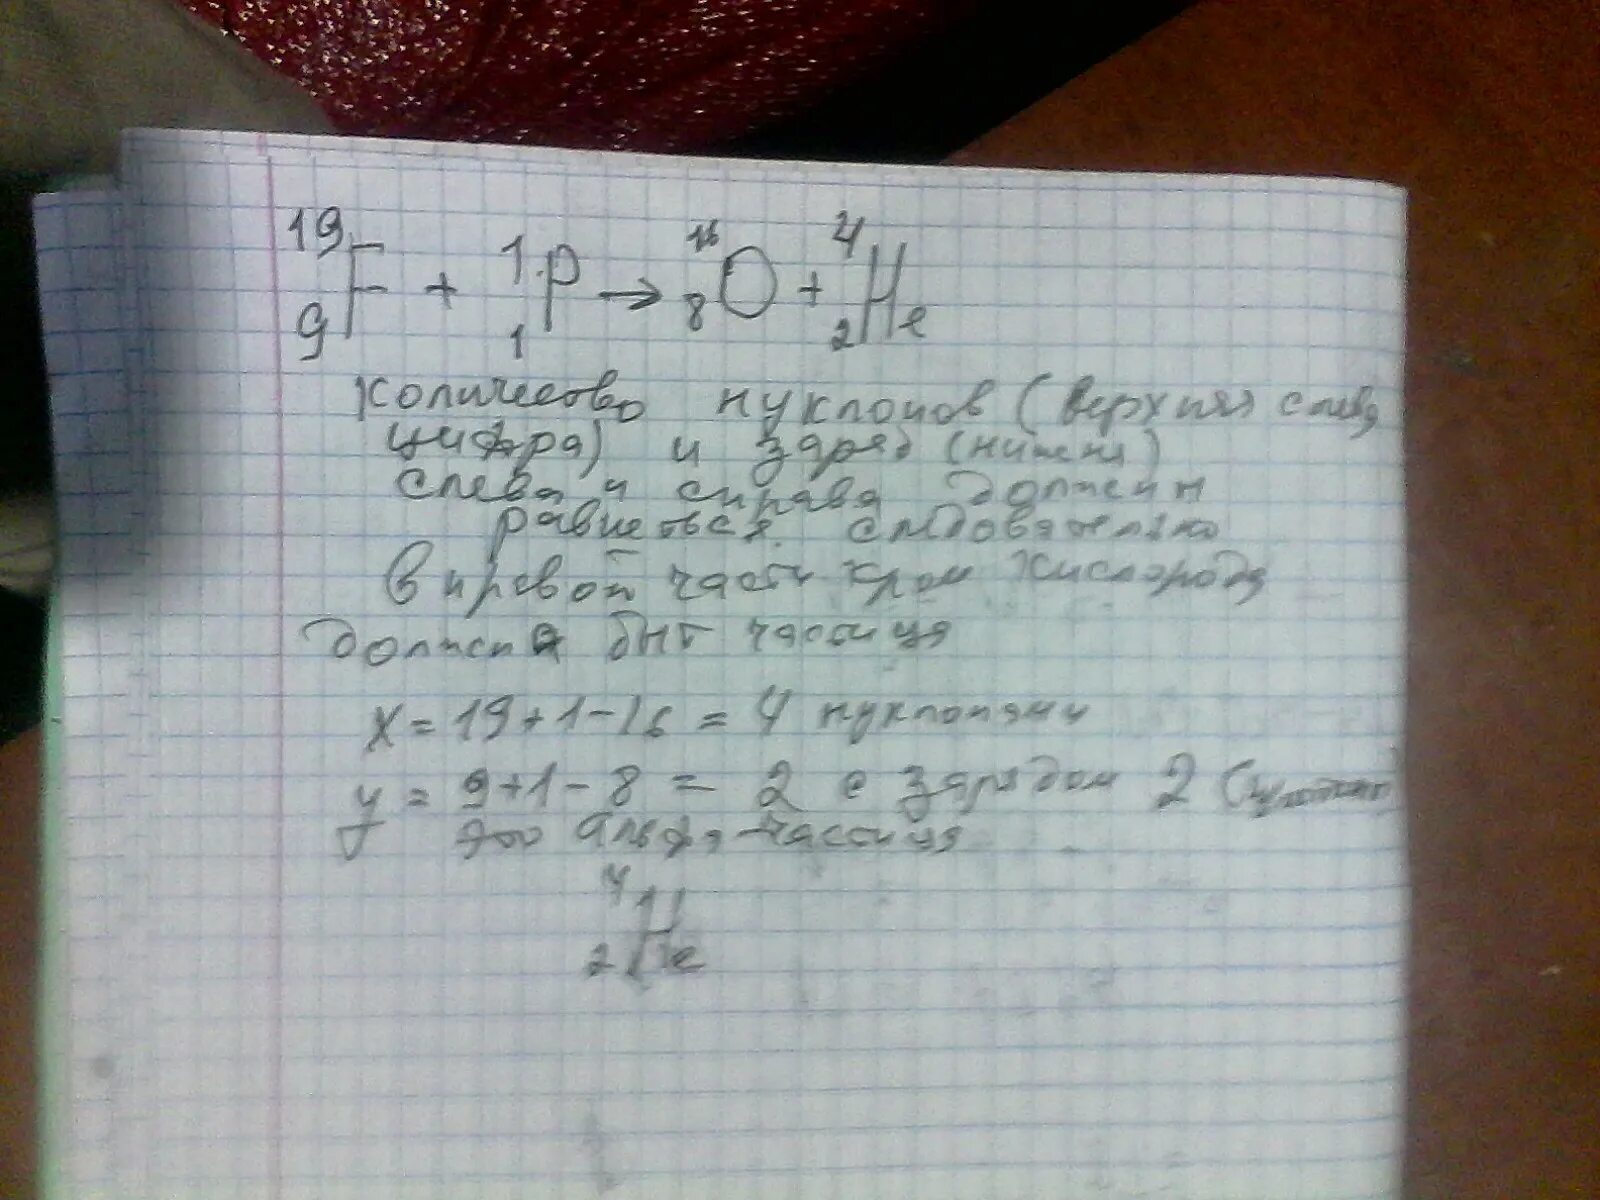 19 9 F + 1 1 p → 16 8 O + 4 2 He
Количество нуклонов (верхняя слева
цифра) и заряд (нижня)
слева и справа должен
равняться. следовательно
В правой части кром кислорода
должна быт частица
x = 19+1-16 = 4 нуклонами
y = 9+1-8 = 2 с зарядом 2
это альфа-частица
4 2 He